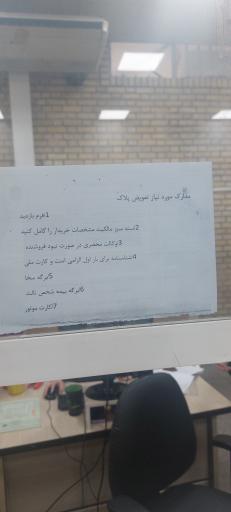 مدارک مورد نیاز تعویض پلاک
1فرم بازدید
2سند سبز مالکیت مشخصات خریدار را کامل کنید
3وکالت محضری در صورت نبود فروشنده
4شناسنامه برای بار اول الزامی است و کارت ملی
5برگه سخا
6برگه بیمه شخص ثالث
7کارت موتور